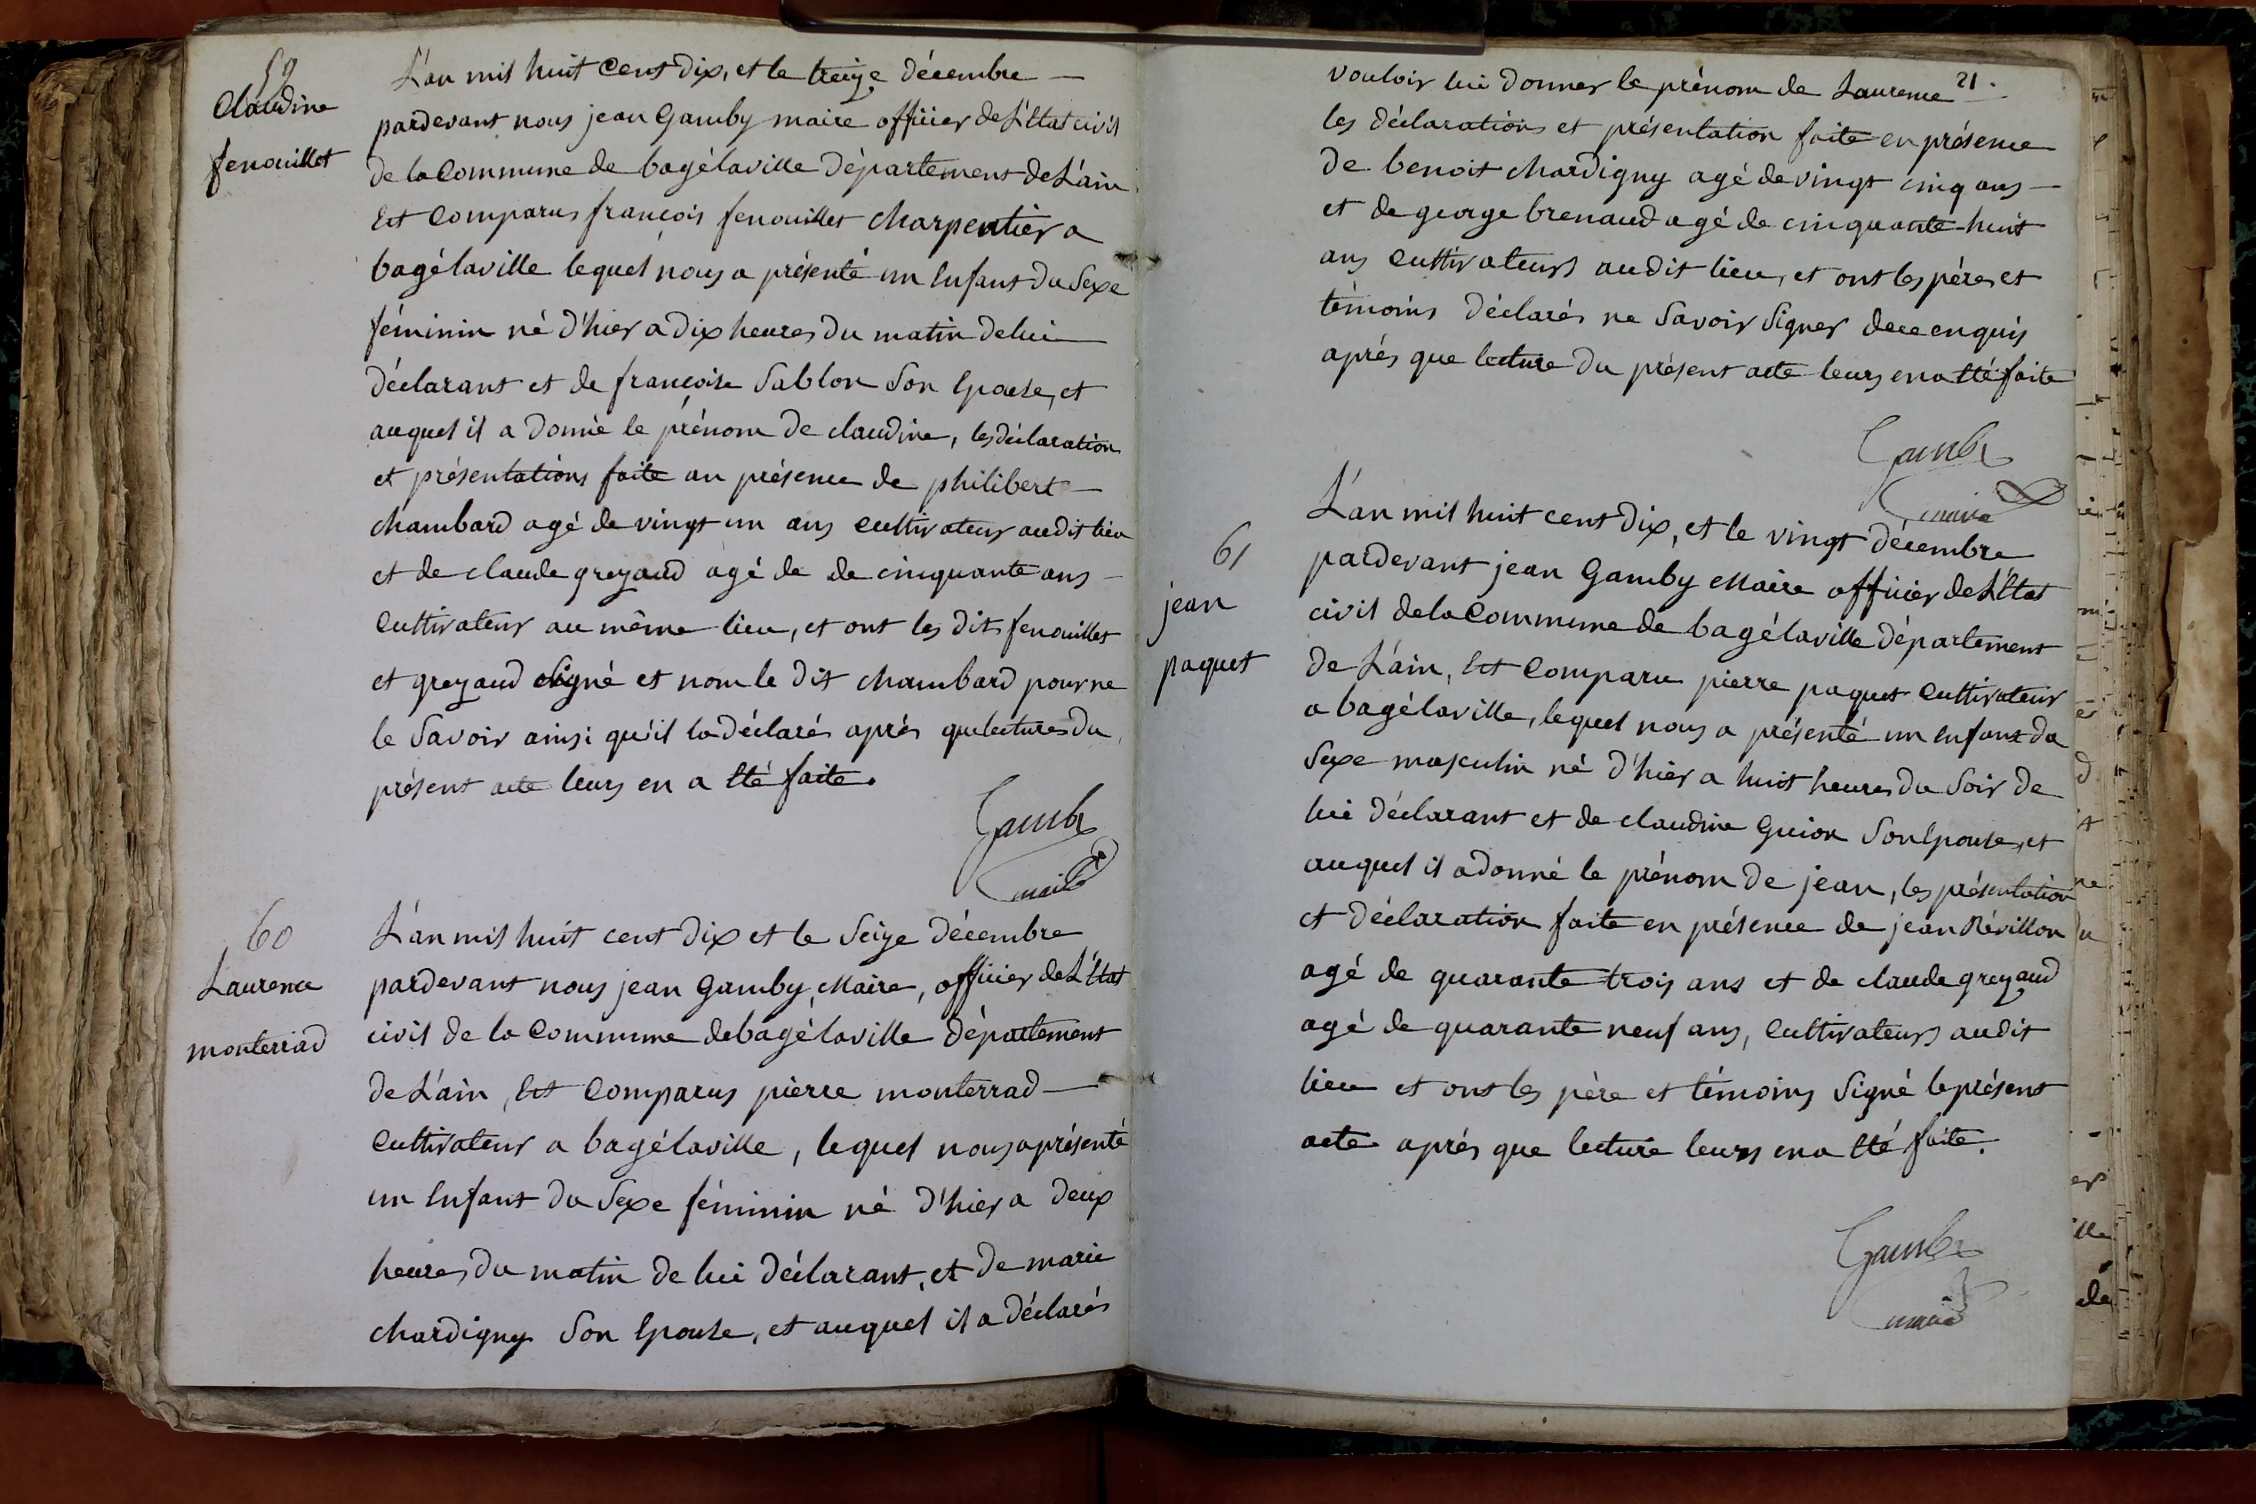 59
Claudine
fenouillet
L'an mil huit cent dix, et le treize décembre —
pardevant nous jean Gamby maire officier de L'Etat civil
de la Commune de bagélaville Département de L'ain
Est Comparus françois fenouillet charpentier a
bagélaville lequel nous a présenté un Enfant du Sexe
féminin né d'hier a dix heures du matin de lui
déclarant et de françoise Sablon Son Epouse, et
auquel il a donné le prénom de claudine, les déclaration
et présentations faite an présence de philibert —
chambard agé de vingt un ans cultivateur audit lieu
et de claude greyaud agé de de cinquante ans —
cultivateur au même lieu, et ont les dits fenouillet
et greyaud Signé et nom le dit chambard pour ne
le Savoir ainsi qu'il la déclarés après que lectures du
présent acte leurs en a Eté faite.
Gamby
maire
60
Laurence
monterrad
L'an mil huit cent dix et le Seize décembre
pardevant nous jean Gamby, Maire, officier de L'Etat
civil de la Commune de bagélaville département
de L'ain, Est Comparus pierre monterrad —
Cultivateur a bagélaville, lequel nous a présenté
un Enfant du Sexe féminin né d'hier a deux
heures du matin de lui déclarant, et de marie
chardigny Son Epouse, et auquel il a déclarés
21.
vouloir lui donner le prénom de Laurence —
les déclarations et présentation faite en présence
de benoit chardigny agé de vingt cinq ans —
et de george brenaud agé de cinquante-huit
ans Cultivateurs audit lieu, et ont les pères et
témoins déclarés ne Savoir Signer de ce enquis
après que lecture du présent acte leurs en a Eté faite
Gamby
maire
61
jean
paquet
L'an mil huit cent dix, et le vingt décembre
pardevant jean Gamby Maire officier de L'Etat
civil de la Commune de bagélaville département
de L'ain, Est Comparu pierre paquet Cultivateur
a bagélaville, lequel nous a présenté un Enfant du
Sexe masculin né d'hier a huit heures du Soir de
lui déclarant et de claudine Guion Son Epouse, et
auquel il a donné le prénom de jean, les présentation
et déclaration faite en présence de jean Révillon
agé de quarante trois ans et de claude greyaud
agé de quarante neuf ans, Cultivateurs audit
lieu et ont les père et témoins Signé le présent
acte après que lecture leurs en a Eté faite.
Gamby
maire